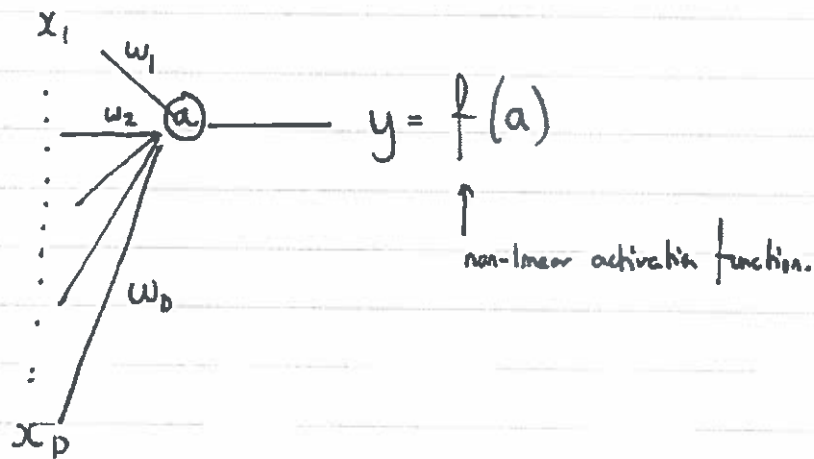 x₁
w₁
w₂
a
y = f(a)
non-linear activation function.
w_D
x_D